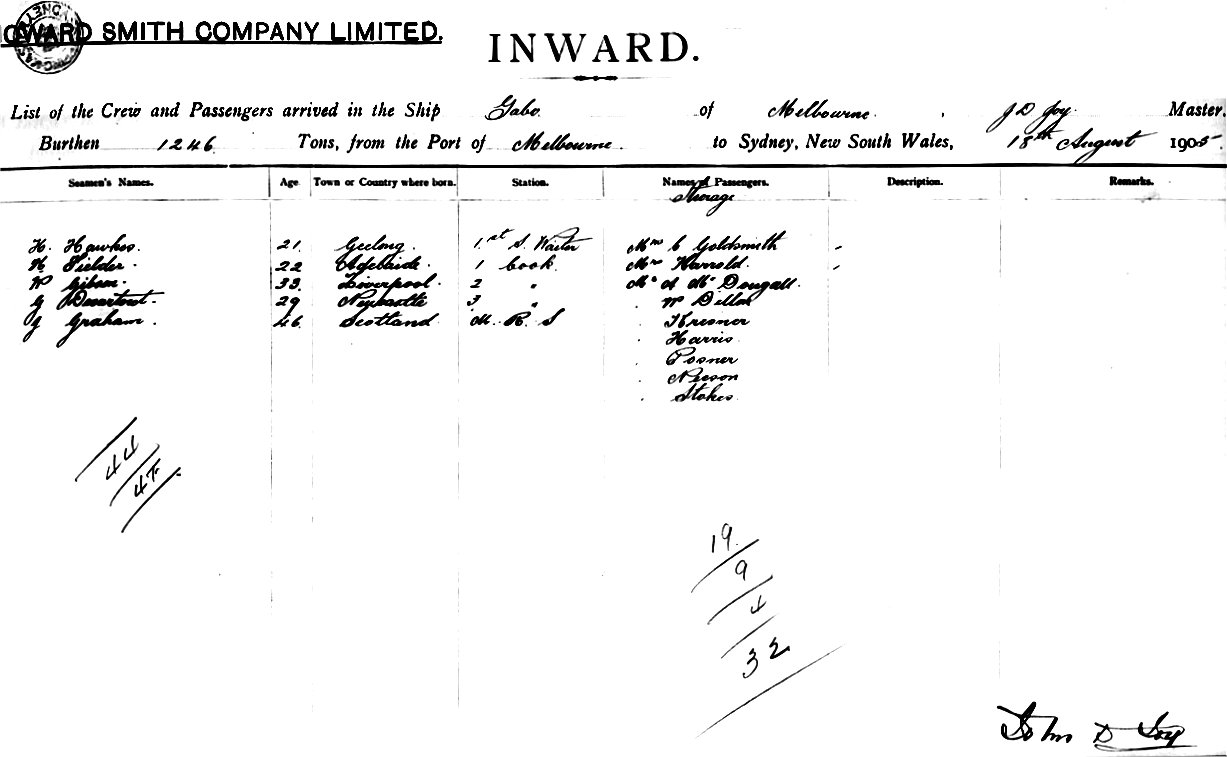 HOWARD SMITH COMPANY LIMITED.
INWARD.
List of the Crew and Passengers arrived in the Ship Gabo of Melbourne, J D Joy Master.
Burthen 1246 Tons, from the Port of Melbourne to Sydney, New South Wales, 18th August 1905.
Seamen's Names. Age. Town or Country where born. Station. Names of Passengers. Description. Remarks.
Steerage
H. Hawkes. 21 Geelong. 1st S. Waiter Mrs C Goldsmith
Fielder. 22 Adelaide. 1 Cook. Mrs Harrold.
W Gibson. 33 Liverpool. 2 " Mr A McDougall
G 29 Newcastle 3 " W Dillon
J Graham. 46 Scotland M. R. S
Harris
Posner
Stokes
44
47
19
9
4
32
John D Joy